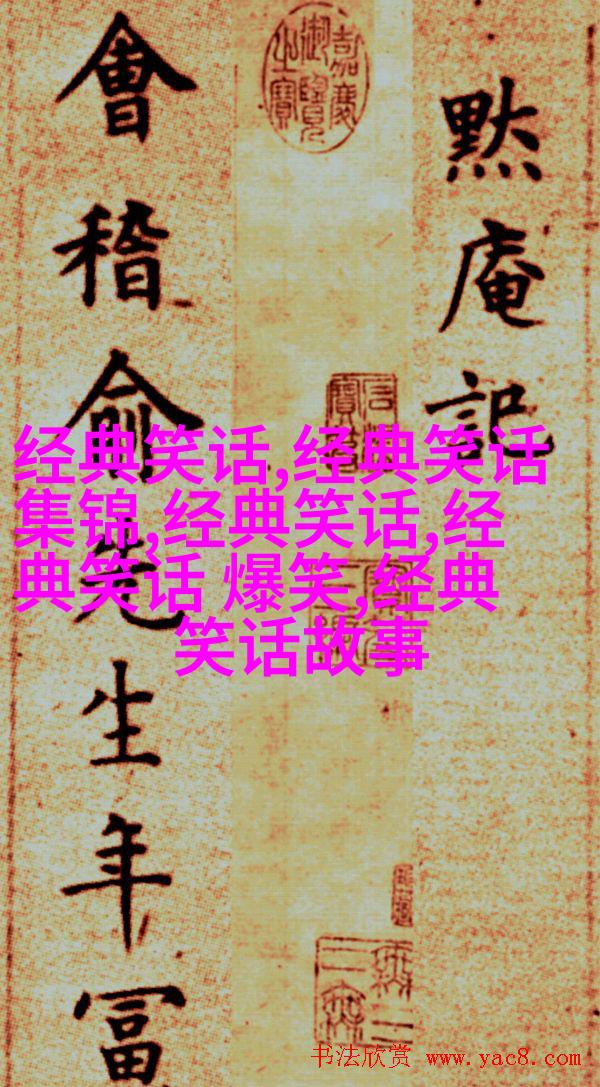 默庵記
嘉慶
御覽
之寶
會稽俞先生年冨
经典笑话,经典笑话
集锦,经典笑话,经
典笑话 爆笑,经典
笑话故事
书法欣赏 www.yac8.com